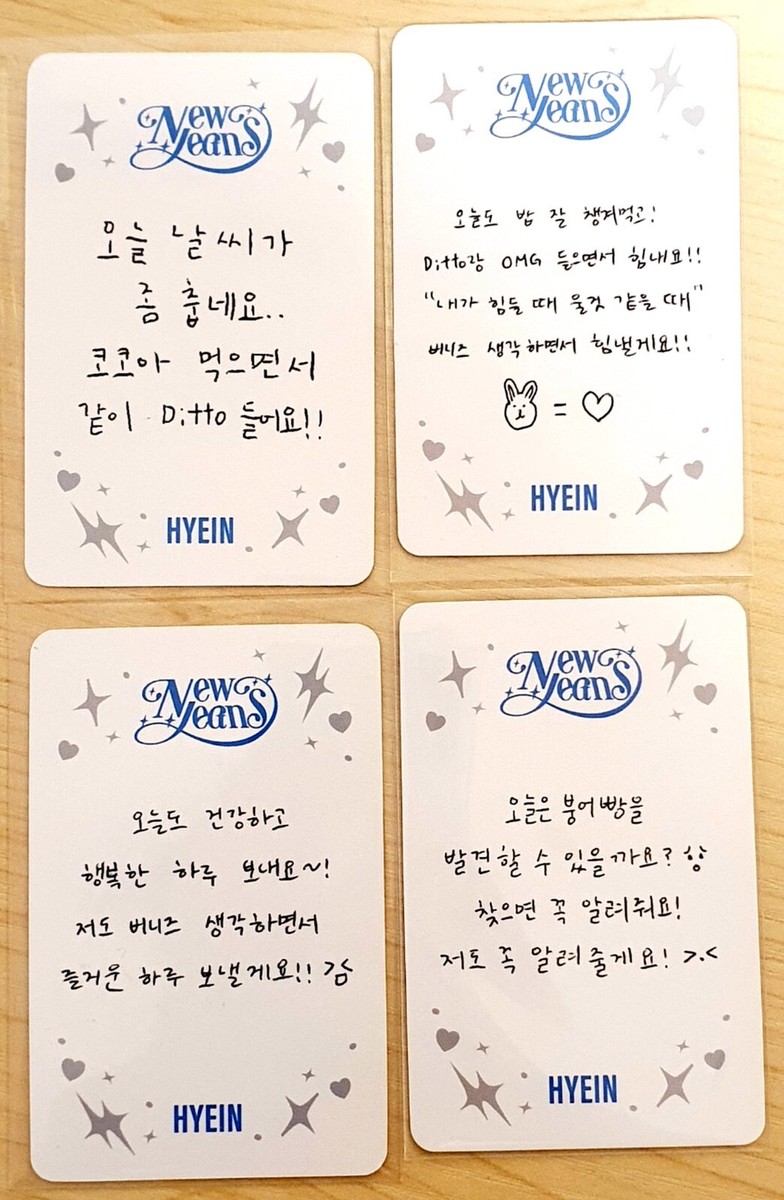 NewJeans
오늘 날씨가
좀 춥네요..
코코아 먹으면서
같이 Ditto 들어요!!
HYEIN
NewJeans
오늘도 밥 잘 챙겨먹고!
Ditto랑 OMG 들으면서 힘내요!!
"내가 힘들 때 울것 같을 때"
버니즈 생각하면서 힘낼게요!!
= ♡
HYEIN
NewJeans
오늘도 건강하고
행복한 하루 보내요~!
저도 버니즈 생각하면서
즐거운 하루 보낼게요!!
HYEIN
NewJeans
오늘은 붕어빵을
발견할 수 있을까요?
찾으면 꼭 알려줘요!
저도 꼭 알려줄게요! >.<
HYEIN